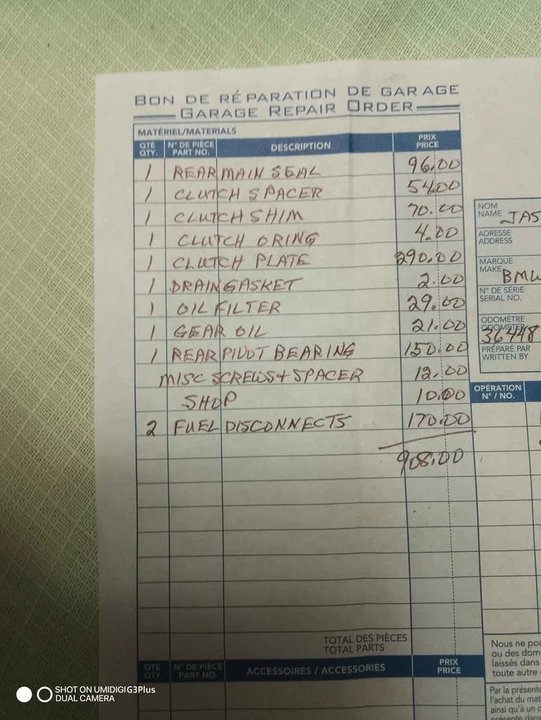 BON DE RÉPARATION DE GARAGE
GARAGE REPAIR ORDER
MATÉRIEL/MATERIALS
QTÉ QTY. N° DE PIÈCE PART NO. DESCRIPTION PRIX PRICE
1 REAR MAIN SEAL 96.00
1 CLUTCH SPACER 54.00
1 CLUTCH SHIM 70.00
1 CLUTCH ORING 4.00
1 CLUTCH PLATE 290.00
1 DRAIN GASKET 2.00
1 OIL FILTER 29.00
1 GEAR OIL 21.00
1 REAR PIVOT BEARING 150.00
MISC SCREWS + SPACER 12.00
SHOP 10.00
2 FUEL DISCONNECTS 170.00
908.00
TOTAL DES PIÈCES
TOTAL PARTS
QTÉ QTY N° DE PIÈCE PART NO. ACCESSOIRES / ACCESSORIES PRIX PRICE
NOM
NAME JAS
ADRESSE
ADDRESS
MARQUE
MAKE BMW
N° DE SÉRIE
SERIAL NO.
ODOMÈTRE
ODOMETER 36448
PRÉPARÉ PAR
WRITTEN BY
OPÉRATION
N° / NO.
Nous ne po
ou des dom
laissés dans
toute autre
Par la présente
l'achat du mat
ainsi qu'à un
SHOT ON UMIDIGI G3Plus
DUAL CAMERA